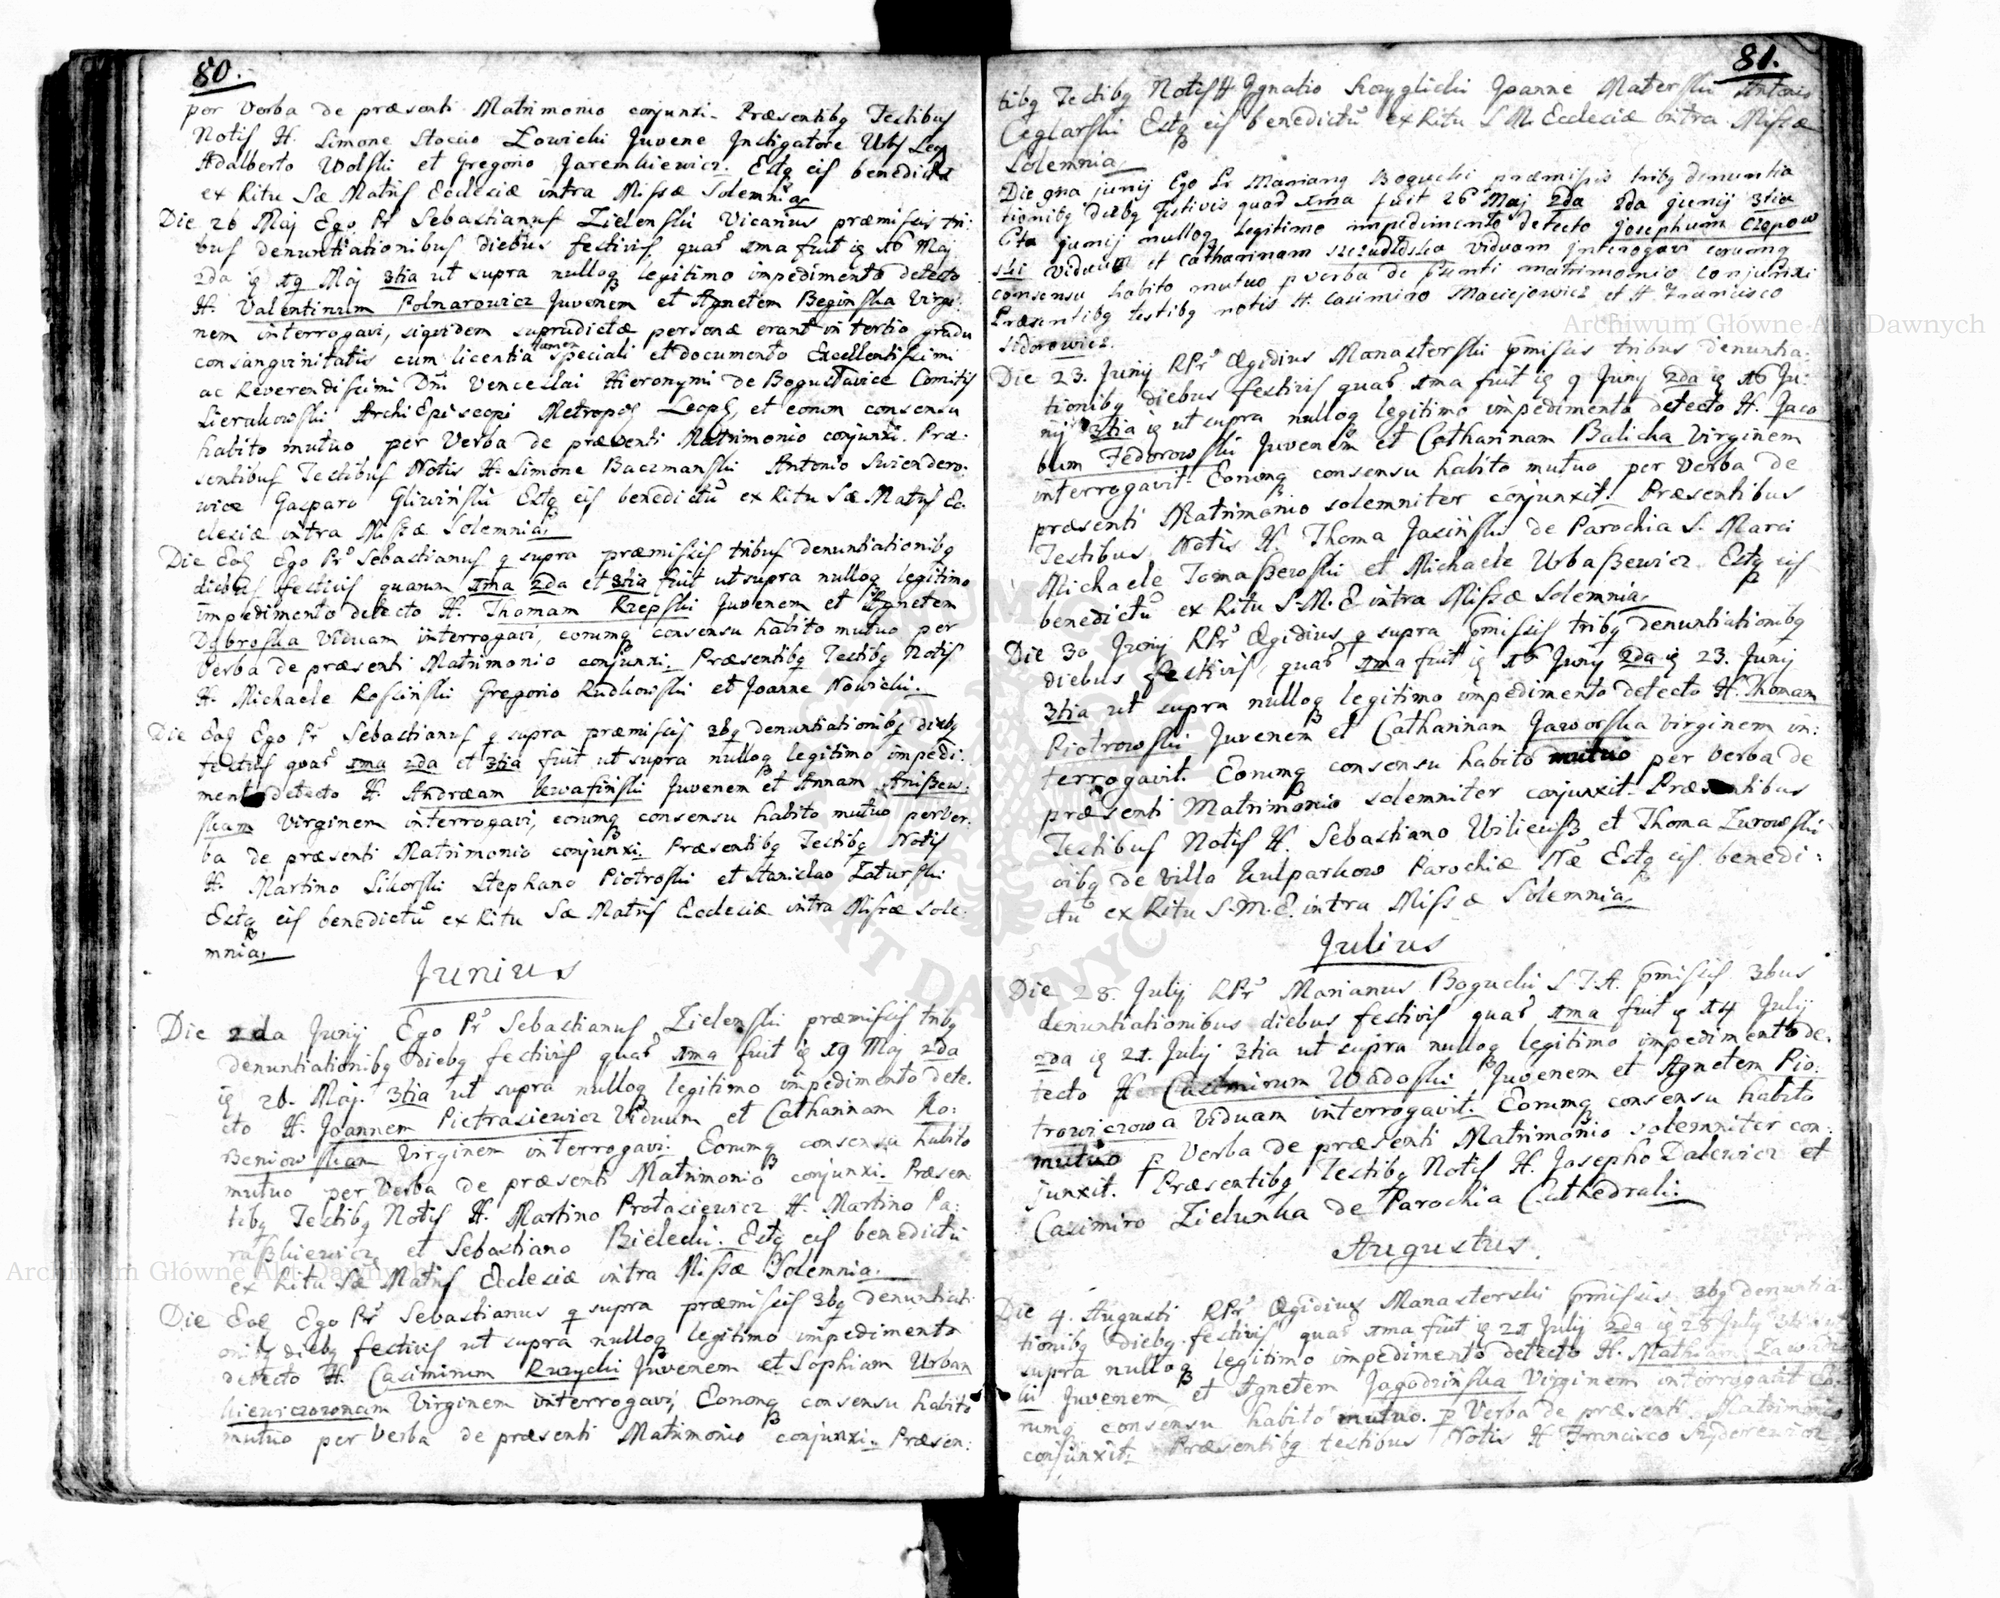 80.
per Verba de præsenti Matrimonio conjunxi. Præsentibq Testibus
Notis H. Simone Stocio Łowicki Juvene Instigatore Urbs Leop
Adalberto Wolski et Gregorio Jaremkiewicz. Estq eis benedictū
ex Ritu Sæ Matris Ecclesiæ intra Missæ Solemnia.
Die 26 Maj Ego Pr Sebastianus Zielenski Vicarius præmissis tri:
bus denuntiationibus diebus festivis, quaꝝ 1ma fuit ią 16 Maj
2da ią 19 Maj 3tia ut supra nulloq legitimo impedimento detecto
H. Valentinum Polnarowicz Juvenem et Agnetem Beginska Virgi:
nem interrogavi, siqvidem supradictæ personæ erant in tertio gradu
consangvinitatis cum licentia tamen speciali et documento Excellentissimi
ac Reverendissimi Dni Venceslai Hieronymi de Bogusławice Comitis
Sierakowski ArchiEpiscopi Metropol Leopol, et eorum consensu
habito mutuo per Verba de præsenti Matrimonio conjunxi. Præ:
sentibus Testibus Notis H. Simone Baczmanski Antonio Swiendero:
wicz Gasparo Gliwiński Estq eis benedictū ex Ritu Sæ Matris Ec:
clesiæ intra Missæ Solemnia.
Die Eaꝺ Ego Pr Sebastianus q supra præmissis tribus denuntiationibq
diebus festivis quarum 1ma 2da et 3tia fuit ut supra nulloq legitimo
impedimento detecto H. Thomam Rzepski Juvenem et Agnetem
Dąbroska Viduam interrogavi, eorumq consensu habito mutuo per
Verba de præsenti Matrimonio conjunxi. Præsentibq Testibq Notis
H. Michaele Rosinski Gregorio Rudkowski et Joanne Nowicki.
Die Eaꝺ Ego Pr Sebastianus q supra præmissis 3bq denuntiationibq diebq
festivis quaꝝ 1ma 2da et 3tia fuit ut supra nulloq legitimo impedi:
mento detecto H. Andræam Kwasinski Juvenem et Annam Anißew:
skam Virginem interrogavi, eorumq consensu habito mutuo per Ver:
ba de præsenti Matrimonio conjunxi. Præsentibq Testibq Notis
H. Martino Sikorski Stephano Piotroski et Stanislao Zaturski
Estq eis benedictū ex Ritu Sæ Matris Ecclesiæ intra Missæ Sole:
mnia.
Junius
Die 2da Junij Ego Pr Sebastianus Zielenski præmissis tribq
denuntiationibq diebq festivis quaꝝ 1ma fuit ią 19 Maj 2da
ią 26. Maj. 3tia ut supra nulloq legitimo impedimento dete:
cto H. Joannem Pietrasiewicz Viduum et Catharinam Ko:
Beniowskam Virginem interrogavi: Eorumq consensu habito
mutuo per Verba de præsenti Matrimonio conjunxi. Præsen
tibq Testibq Notis H. Martino Protasiewicz H. Martino Pa:
raßkiewicz et Sebastiano Bielecki. Estq eis benedictū
ex Ritu Sæ Matris Ecclesiæ intra Missæ Solemnia.
Die Eaꝺ Ego Pr Sebastianus q supra præmissis 3bq denuntiati
onibq diebq festivis ut supra nulloq legitimo impedimento
detecto H. Casimirum Ruzycki Juvenem et Sophiam Urban
kiewiczowncam Virginem interrogavi, Eorumq consensu habito
mutuo per Verba de præsenti Matrimonio conjunxi. Præsen:
81.
tibq Testibq Notis H Ignatio Kozyglicki Joanne Materski Antonio
Ceglarski Estq eis benedictū ex Ritu S M. Ecclesiæ intra Missæ
Solemnia.
Die 9na junij Ego Pr Marianq Bogucki præmissis tribq denuntia
tionibq diebq festivis quaꝝ 1ma fuit 26 Maj 2da 2da junij 3tia
junij nulloq legitimo impedimento detecto Josephum Czopow
ski viduum et Catharinam viduam interogavi eorumq
consensu habito mutuo p verba de psenti matrimonio conjunxi
Præsentibq testibq notis H. Casimiro Maciejowicz et H Francisco
Sidorowicz.
Die 23. Junij RPr Ægidius Manasterski pmissis tribus denuntia:
tionibq diebus festivis quaꝝ 1ma fuit ią 9 Junij 2da ią 16 Ju:
nij 3tia ią ut supra nulloq legitimo impedimento detecto H. Jaco
bum Fedorowski Juvenem et Catharinam Balicka Virginem
interrogavit. Eorumq consensu habito mutuo per Verba de
præsenti Matrimonio solemniter conjunxit. Præsentibus
Testibus Notis H. Thoma Jasiński de Parochia S. Marci
Michaele Tomaßewski et Michaele Urbaßewicz. Estq eis
benedictū ex Ritu S.M.E intra Missæ Solemnia.
Die 30 Junij RPr Ægidius q supra pmissis tribq denuntiationibq
diebus festivis, quaꝝ 1ma fuit ią 16 Junij 2da ią 23. Junij
3tia ut supra nulloq legitimo impedimento detecto H. Thomam
Piotrowski Juvenem et Catharinam Jaworska Virginem in:
terrogavit. Eorumq consensu habito mutuo per Verba de
præsenti Matrimonio solemniter conjunxit. Præsentibus
Testibus Notis H. Sebastiano et Thoma Zurowski
oibq de villa Kulparkow Parochiæ Næ Estq eis benedi:
ctū ex Ritu S.M.E. intra Missæ Solemnia.
Julius
Die 28. Julij RPr Marianus Bogucki S.T.A. pmissis 3bus
denuntiationibus diebus festivis quaꝝ 1ma fuit ią 14 Julij
2da ią 21. Julij 3tia ut supra nulloq legitimo impedimento de:
tecto H. Casimirum Wadoski Juvenem et Agnetem Pio:
trowiczowa Viduam interrogavit. Eorumq consensu habito
mutuo p Verba de præsenti Matrimonio solemniter con:
junxit. Præsentibq Testibq Notis H. Josepho Dalewicz et
Casimiro Zielunka de Parochia Cathedrali.
Augustus.
Die 4. Augusti RPr Ægidius Manasterski pmissis 3bq denuntia
tionibq diebq festivis quaꝝ 1ma fuit ią 21 Julij 2da ią 28 Julij 3tia ut
supra nulloq legitimo impedimento detecto H. Mathiam Zawadz
ki Juvenem et Agnetem Jagodzińska Virginem interrogavit Eo:
rumq consensu habito mutuo. p Verba de præsenti Matrimonio
conjunxit. Præsentibq testibus Notis H Francisco Sydorowicz
Archiwum Główne Akt Dawnych
Archiwum Główne Akt Dawnych